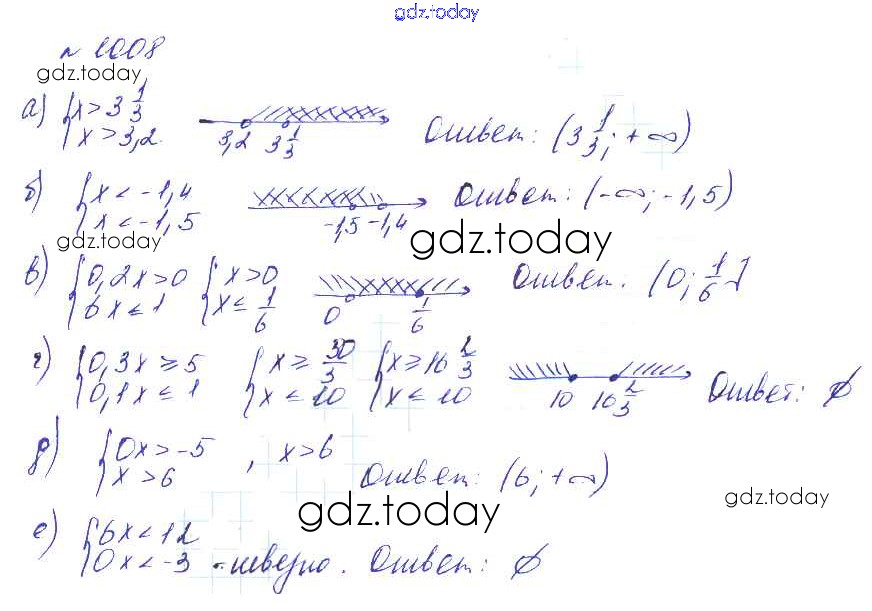 gdz.today
№ 1008
gdz.today
а) { x > 3 1/3
x > 3,2
3,2 3 1/3
Ответ: (3 1/3; +∞)
б) { x < -1,4
x < -1,5
-1,5 -1,4
Ответ: (-∞; -1,5)
gdz.today
gdz.today
в) { 0,2x > 0 { x > 0
6x ≤ 1 x ≤ 1/6
0 1/6
Ответ: (0; 1/6]
г) { 0,3x ≥ 5 { x ≥ 50/3 { x ≥ 16 2/3
0,1x ≤ 1 x ≤ 10 x ≤ 10
10 16 2/3
Ответ: ∅
д) { 0x > -5 , x > 6
x > 6
Ответ: (6; +∞)
gdz.today
gdz.today
е) { 6x < 12
0x < -3 - неверно. Ответ: ∅